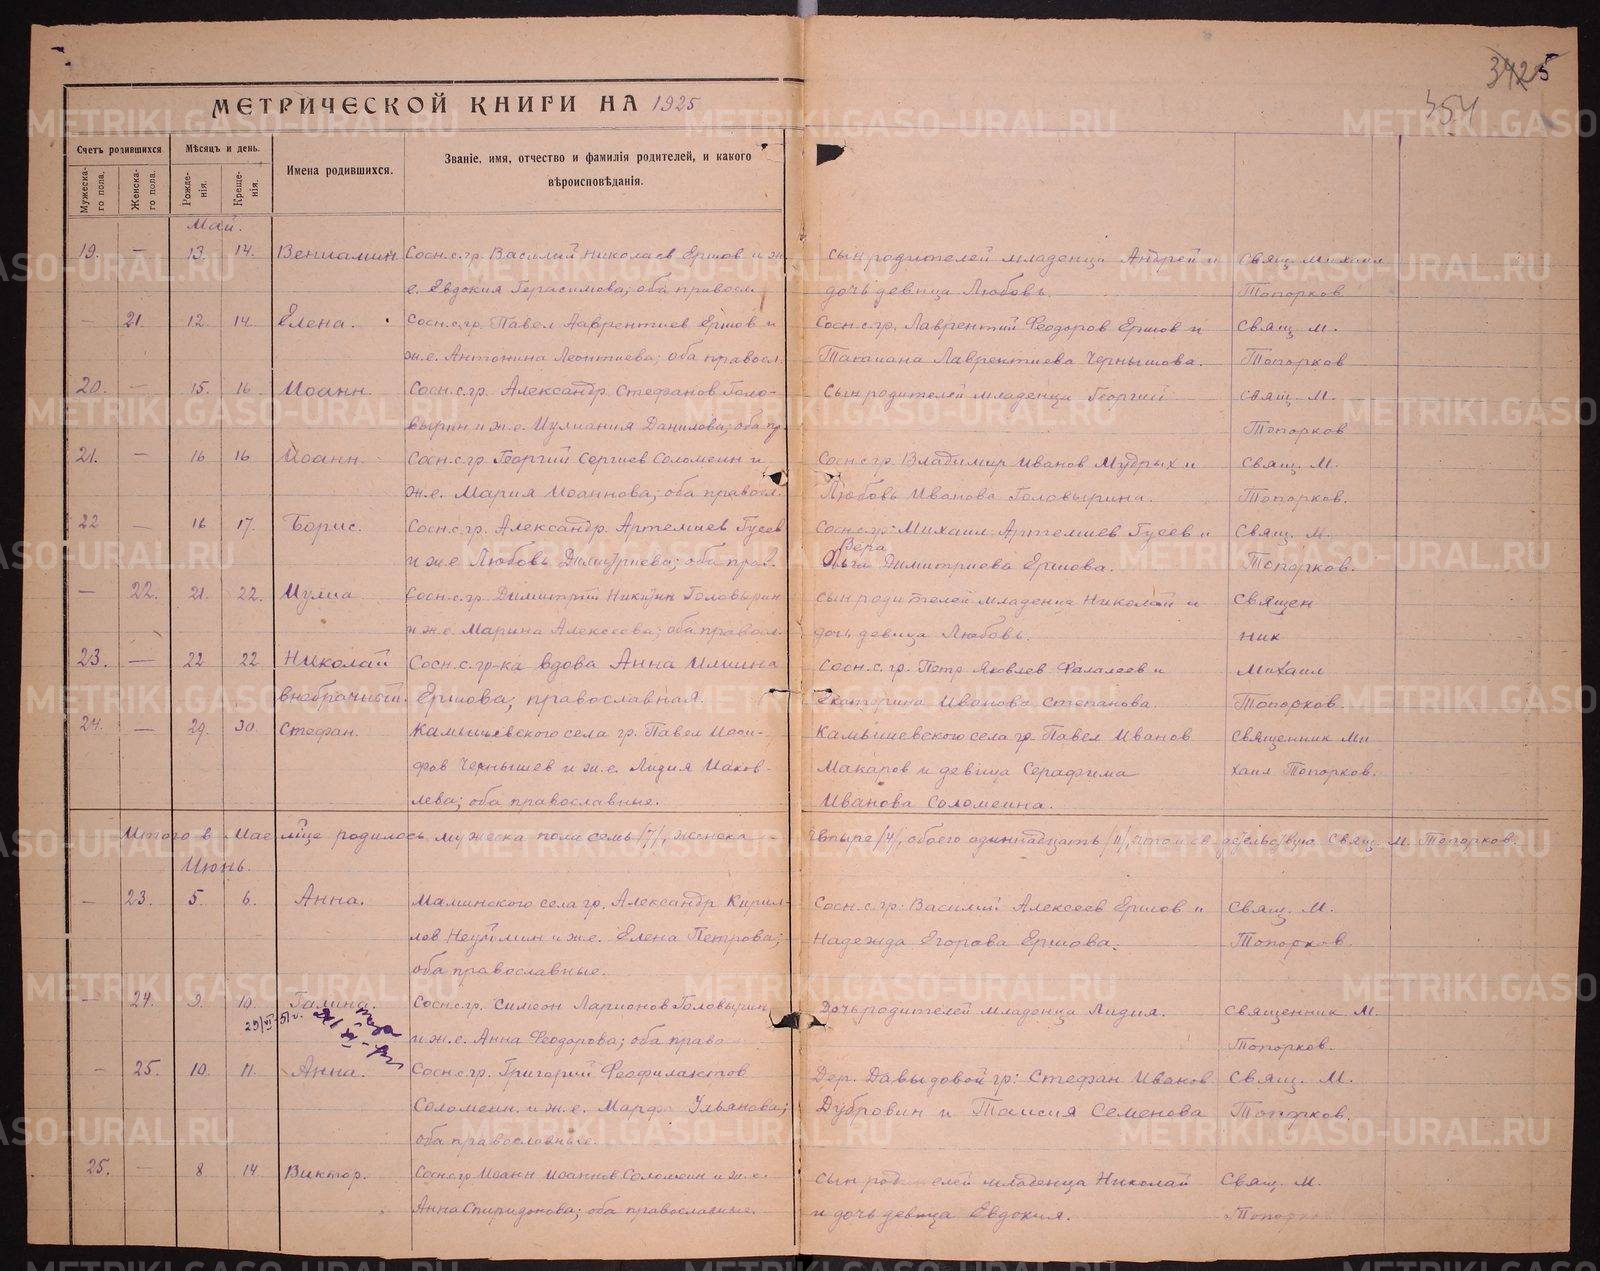 3425
354
МЕТРИЧЕСКОЙ КНИГИ НА 1925
Счетъ родившихся.
Мѣсяцъ и день.
Имена родившихся.
Званіе, имя, отчество и фамилія родителей, и какого
вѣроисповѣданія.
Мужеска-
го пола.
Женска-
го пола.
Рожде-
нія.
Креще-
нія.
Май.
19. — 13. 14. Вениамин Сосн. с. гр. Василий Николаев Ершов и ж. сын родителей младенца Андрей и Свящ. Михаил
е. Евдокия Герасимова; оба правосл. дочь девица Любовь. Топорков
— 21. 12. 14. Елена. Сосн. с. гр. Павел Лаврентиев Ершов и Сосн. с. гр. Лаврентий Феодоров Ершов и Свящ. М.
ж. е. Антонина Леонтиева; оба правосл. Татиана Лаврентиева Чернышова. Топорков
20. — 15. 16 Иоанн. Сосн. с. гр. Александр Стефанов Голо- Сын родителей младенца Георгий Свящ. М.
вырин и ж. е. Иулиания Данилова; оба пр. Топорков
21. — 16 16 Иоанн. Сосн. с. гр. Георгий Сергиев Соломеин и Сосн. с. гр. Владимир Иванов Мудрых и Свящ. М.
ж. е. Мария Иоаннова; оба правосл. Любовь Иванова Головырина. Топорков.
22 — 16 17. Борис. Сосн. с. гр. Александр Артемиев Гусев Сосн. с. гр: Михаил Артемиев Гусев и Свящ. М.
Вера
и ж. е Любовь Димитриева; оба прав. Ольга Димитриева Ершова. Топорков.
— 22. 21. 22. Иулиа Сосн. с. гр. Димитрий Никитин Головырин сын родителей младенца Николай и Священ
и ж. е. Марина Алексеева; оба правосл. дочь девица Любовь. ник
23. — 22 22 Николай Сосн. с. гр-ка вдова Анна Илиина Сосн. с. гр. Петр Яковлев Фалалеев и Михаил
внебрачный. Ершова; православная. Екатерина Иванова Степанова. Топорков.
24. — 29. 30. Стефан. Камышевского села гр. Павел Иоси- Камышевского села гр. Павел Иванов Священник Ми
фов Чернышев и ж. е. Лидия Иаков- Макаров и девица Серафима хаил Топорков.
лева; оба православные. Иванова Соломеина.
Итого в Мае м-це родилось мужеска пола семь /7/, женска — четыре /4/, обоего одиннадцать /11/, в том свидетельствую Свящ. М. Топорков.
Июнь.
— 23. 5. 6. Анна. Маминского села гр. Александр Кирил- Сосн. с. гр: Василий Алексеев Ершов и Свящ. М.
лов Неуймин и ж. е. Елена Петрова; Надежда Егорова Ершова. Топорков.
оба православные.
— 24. 9. 10. Галина. Сосн. с. гр. Симеон Ларионов Головырин Дочь родителей младенца Лидия. Священник М.
29/VI-51 г.
и ж. е. Анна Феодорова; оба право Топорков.
— 25. 10. 11. Анна. Сосн. с. гр. Григорий Феофилактов Дер. Давыдовой гр: Стефан Иванов Свящ. М.
Соломеин и ж. е. Марфа Ульянова; Дубровин и Таисия Семенова Топорков.
оба православные.
25. — 8 14 Виктор. Сосн. с. гр Иоанн Иоаннов Соломеин и ж. е. сын родителей младенца Николай Свящ. М.
Анна Спиридонова; оба православные. и дочь девица Евдокия. Топорков
METRIKI.GASO-URAL.RU